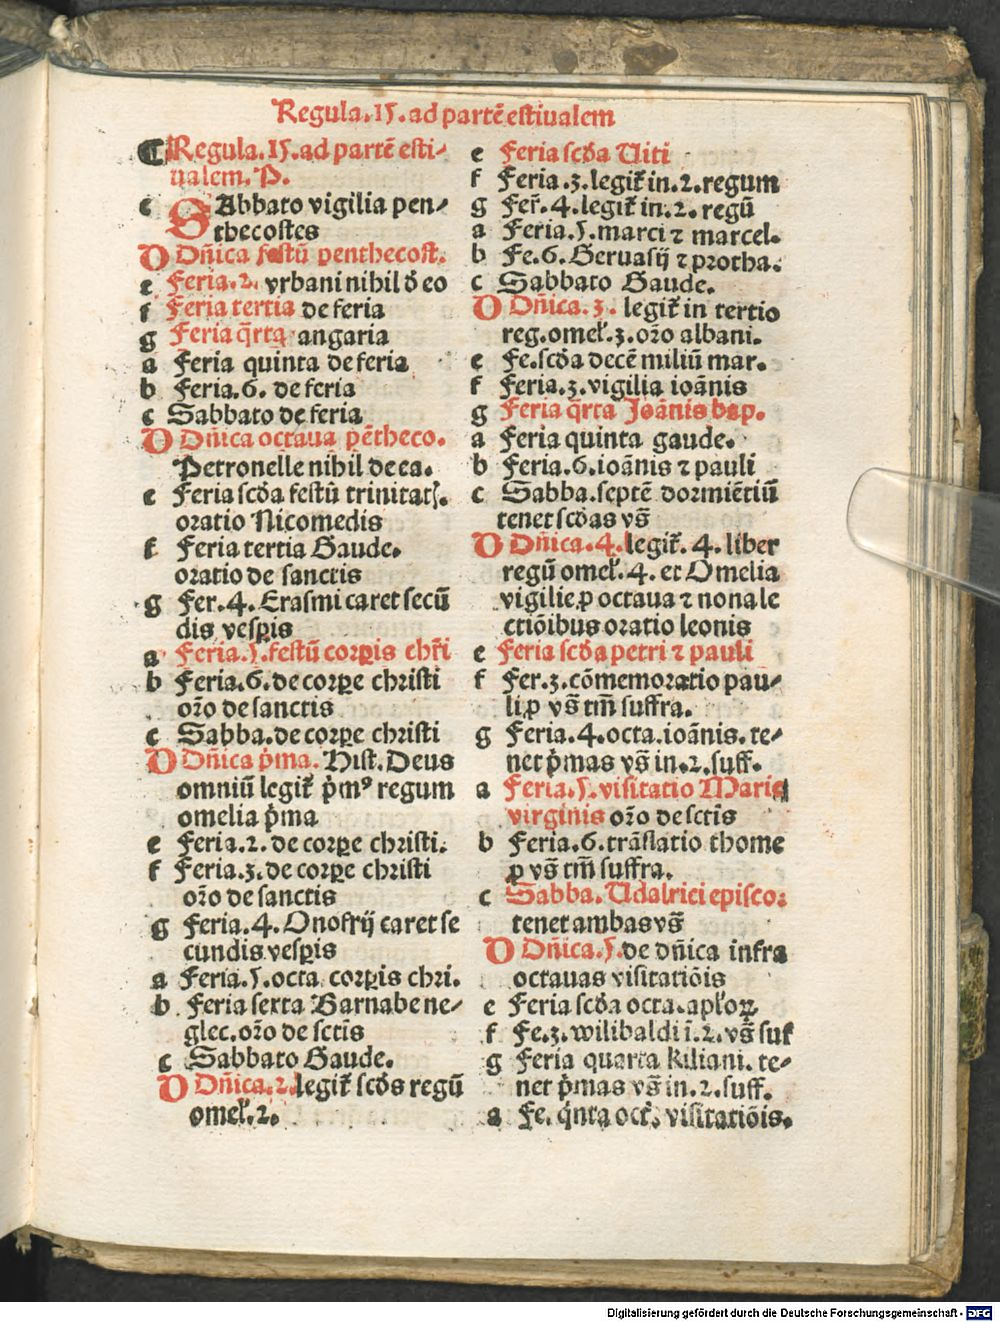 Regula.15.ad partē estiualem
¶Regula.15.ad partē esti⸗
ualem. P.
c SAbbato vigilia pen⸗
thecostes
D Dñica festū penthecost.
e Feria.2. vrbani nihil ð eo
f Feria tertia de feria
g Feria q̄rta angaria
a Feria quinta de feria
b Feria.6. de feria
c Sabbato de feria
D Dñica octaua pētheco.
Petronelle nihil de ea.
e Feria scða festū trinitat.
oratio Nicomedis
f Feria tertia Gaude.
oratio de sanctis
g Fer.4. Erasmi caret secū
dis vesꝑis
a Feria.5.festū corꝑis chr̄i
b Feria.6.de corꝑe christi
or̄o de sanctis
c Sabba.de corꝑe christi
D Dñica p̄ma. Hist. Deus
omniū legit᷑ p̄mꝰ regum
omelia p̄ma
e Feria.2.de corꝑe christi.
f Feria.3.de corꝑe christi
or̄o de sanctis
g Feria.4. Onofrij caret se
cundis vesꝑis
a Feria.5.octa corꝑis chri.
b Feria sexta Barnabe ne⸗
glec.or̄o de sctīs
c Sabbato Gaude.
D Dñica.2.legit᷑ scðs regū
omel̄.2.
e Feria scða Viti
f Feria.3.legit᷑ in.2.regum
g Fer̄.4.legit᷑ in.2.regū
a Feria.5.marci ⁊ marcel.
b Fe.6. Geruasij ⁊ protha.
c Sabbato Gaude.
D Dñica.3. legit᷑ in tertio
reg.omel̄.3.or̄o albani.
e Fe.scða decē miliū mar.
f Feria.3.vigilia ioānis
g Feria q̄rta Joānis bap.
a Feria quinta gaude.
b Feria.6.ioānis ⁊ pauli
c Sabba.septē dormiētiū
tenet scðas vs̄
D Dñica.4.legit᷑.4.liber
regū omel̄.4.et Omelia
vigilie ꝓ octaua ⁊ nona le
ctiōibus oratio leonis
e Feria scða petri ⁊ pauli
f Fer.3.cōmemoratio pau⸗
li ꝓ vs̄ tm̄ suffra.
g Feria.4.octa.ioānis.te⸗
net p̄mas vs̄ in.2.suff.
a Feria.5.visitatio Marie
virginis or̄o de sctīs
b Feria.6.trāslatio thome
ꝓ vs̄ tm̄ suffra.
c Sabba. Vdalrici episco:
tenet ambas vs̄
D Dñica.5.de dñica infra
octauas visitatiōis
e Feria scða octa.apl̄oꝝ
f Fe.3.wilibaldi ī.2.vs̄ suf
g Feria quarta kiliani.te⸗
net p̄mas vs̄ in.2.suff.
a Fe. q̇nta oct̄. visitatiōis.
Digitalisierung gefördert durch die Deutsche Forschungsgemeinschaft - DFG